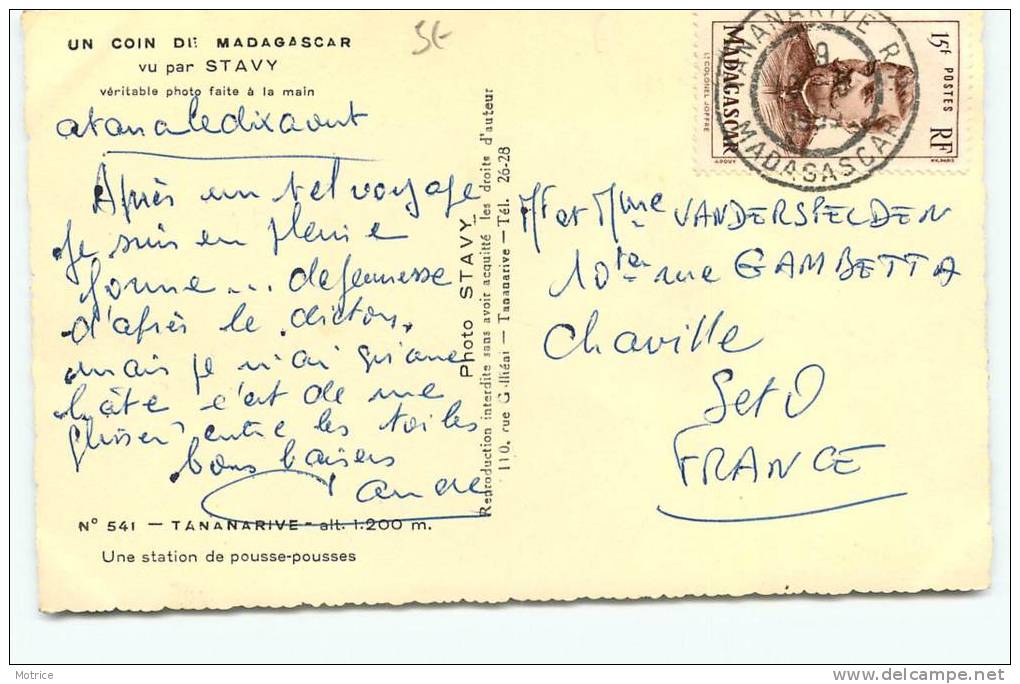 UN COIN DE MADAGASCAR
vu par STAVY
véritable photo faite à la main
5€
atanaledixaout
Après un tel voyage
je suis en pleine
forme... dejeunesse
d'après le dicton,
mais je n'ai qu'une
hâte c'est de me
glisser entre les toiles
bons baisers
N° 541 — TANANARIVE - alt. 1.200 m.
Une station de pousse-pousses
Photo STAVY
Reproduction interdite sans avoir acquitté les droits d'auteur
110, rue Galliéni — Tananarive — Tél. 26-28
15F POSTES RF
MADAGASCAR
LT COLONEL JOFFRE
TANANARIVE R.P.
MADAGASCAR
Mr et Mme VANDERSPELDEN
10ter rue GAMBETTA
Chaville
S et O
FRANCE
Motrice
www.delcampe.net